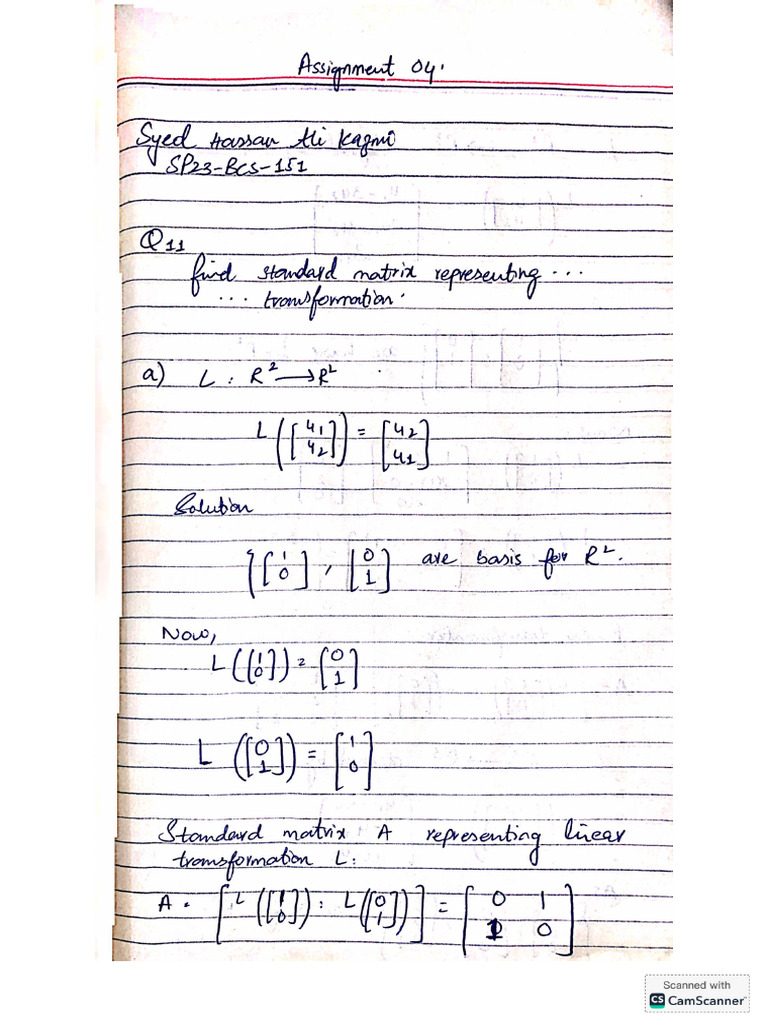 Assignment 04.
Syed Hassan Ali Kazmi
SP23-BCS-151
Q11
find standard matrix representing ...
... transformation.
a) L : R² → R²
L([u1 u2]) = [u2 u1]
Solution
{[1 0], [0 1] are basis for R².
Now,
L([1 0]) = [0 1]
L([0 1]) = [1 0]
Standard matrix A representing linear
transformation L:
A = [L([1 0]) : L([0 1])] = [0 1 1 0]
Scanned with
CS CamScanner